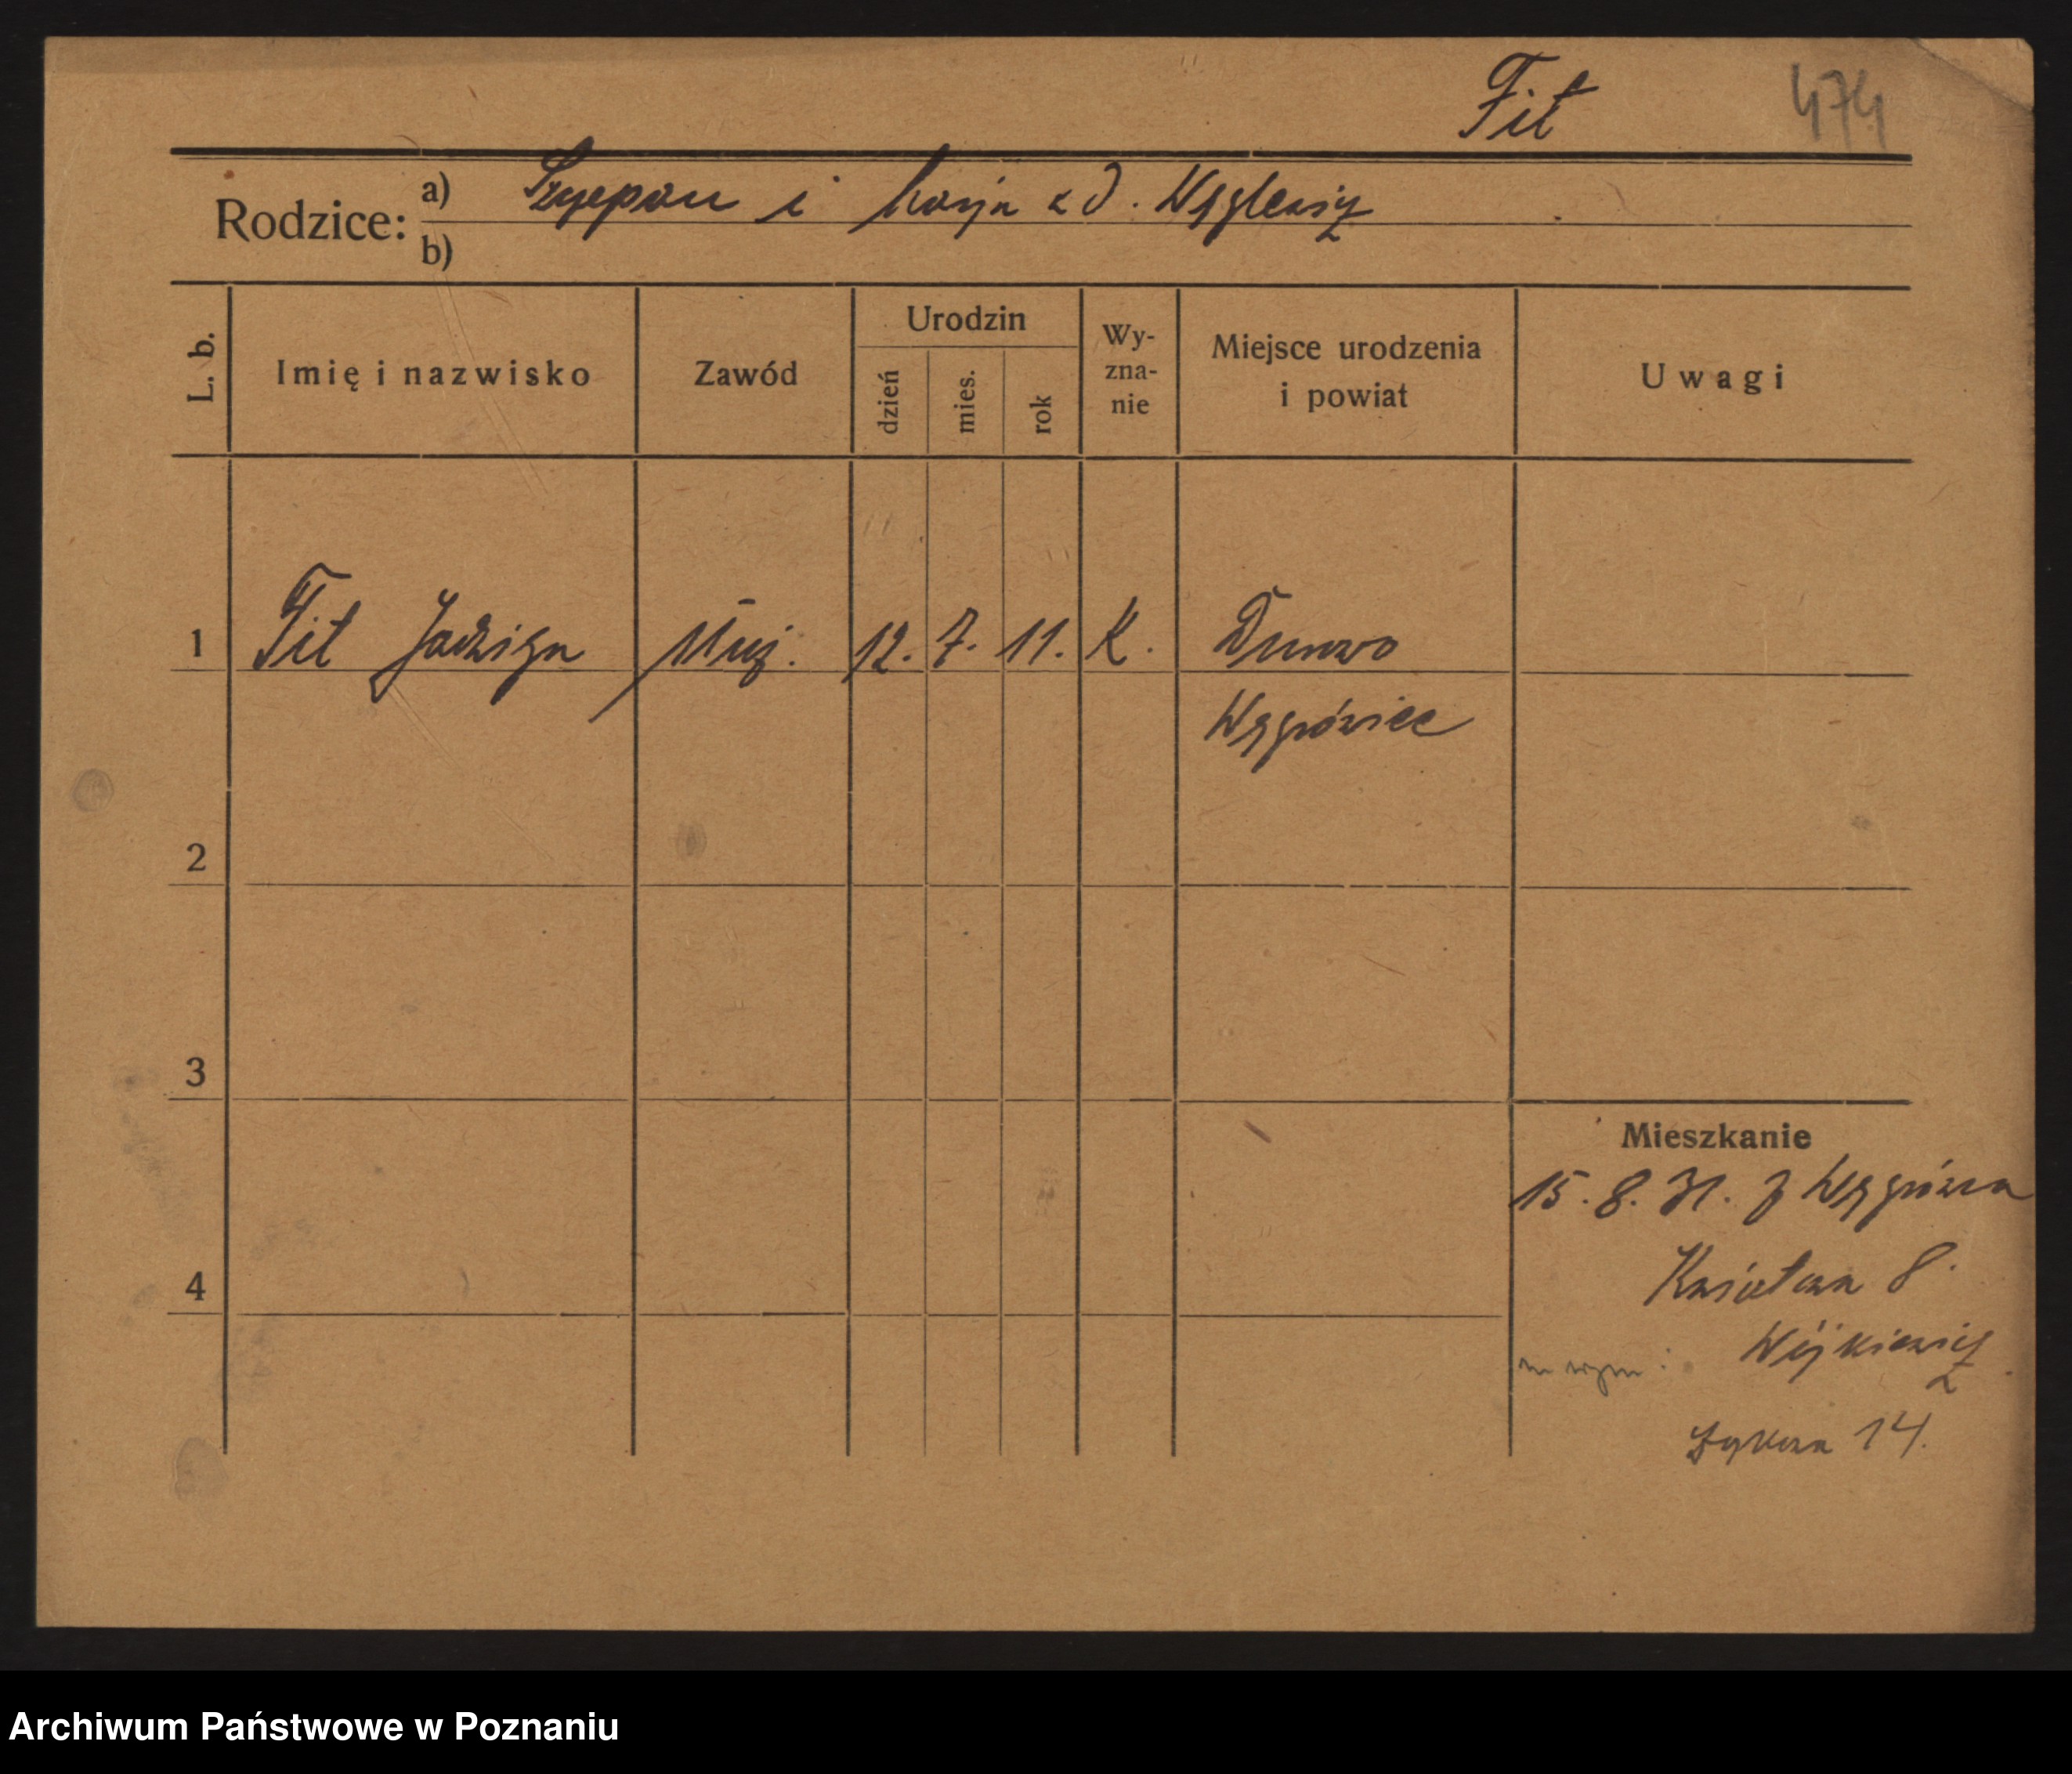 Fit 474
Rodzice: a) Szczepan i Marja z d. Węglewicz
b)
L. b. Imię i nazwisko Zawód Urodzin dzień mies. rok Wy-zna-nie Miejsce urodzenia i powiat Uwagi
1 Fit Jadwiga służ. 12. 7. 11. K. Durowo
Wągrówiec
2
3
Mieszkanie
15. 8. 31. z Wągrówca
4 Kwiatowa 8.
Wójkiewicz
14.
Archiwum Państwowe w Poznaniu